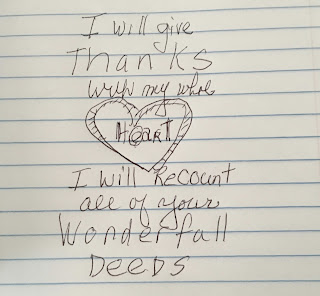 I will give
Thanks
with my whole
Heart
I will Recount
all of your
Wonderfall
Deeds